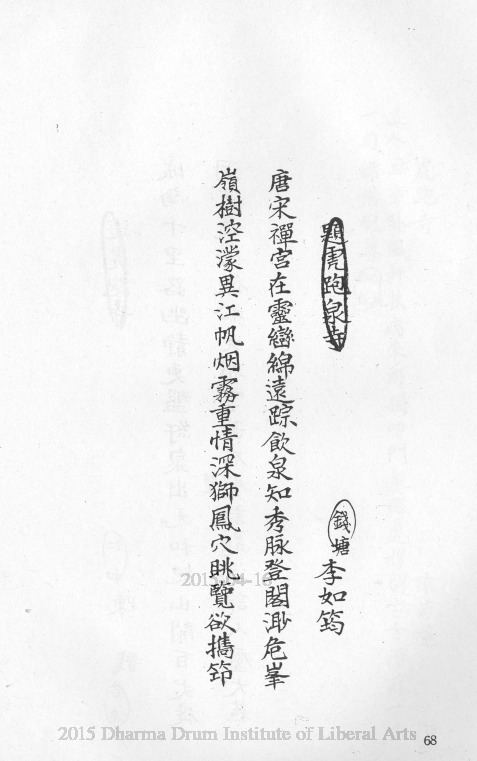 題虎跑泉寺
錢塘 李如筠
唐宋禪宮在靈巒綿遠踪飲泉知秀脉登閣渺危峯
嶺樹涳濛異江帆烟霧重情深獅鳳穴眺覽欲攜筇
2015-04-16
2015 Dharma Drum Institute of Liberal Arts
68